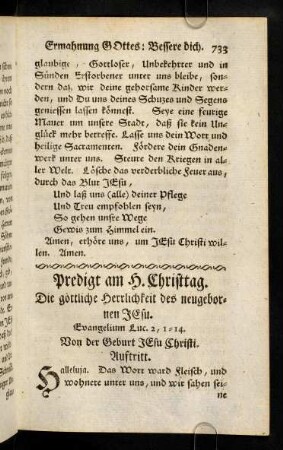 Ermahnung GOttes: Bessere dich. 733
glaubige, Gottloser, Unbekehrter und in
Sünden Erstorbener unter uns bleibe, son-
dern daß wir deine gehorsame Kinder wer-
den, und Du uns deines Schuzes und Segens
geniessen lassen könnest. Seye eine feurige
Mauer um unsere Stadt, daß sie kein Un-
glück mehr betreffe. Lasse uns dein Wort und
heilige Sacramenten. Fördere dein Gnaden-
werk unter uns. Steure den Kriegen in al-
ler Welt. Lösche das verderbliche Feuer aus,
durch das Blut JEsu,
Und laß uns (alle) deiner Pflege
Und Treu empfohlen seyn,
So gehen unsre Wege
Gewis zum Himmel ein.
Amen, erhöre uns, um JEsu Christi wil-
len. Amen.
Predigt am H. Christtag.
Die göttliche Herrlichkeit des neugebor-
nen JEsu.
Evangelium Luc. 2, 1-14.
Von der Geburt JEsu Christi.
Auftritt.
Halleluja. Das Wort ward Fleisch, und
wohnete unter uns, und wir sahen sei-
ne